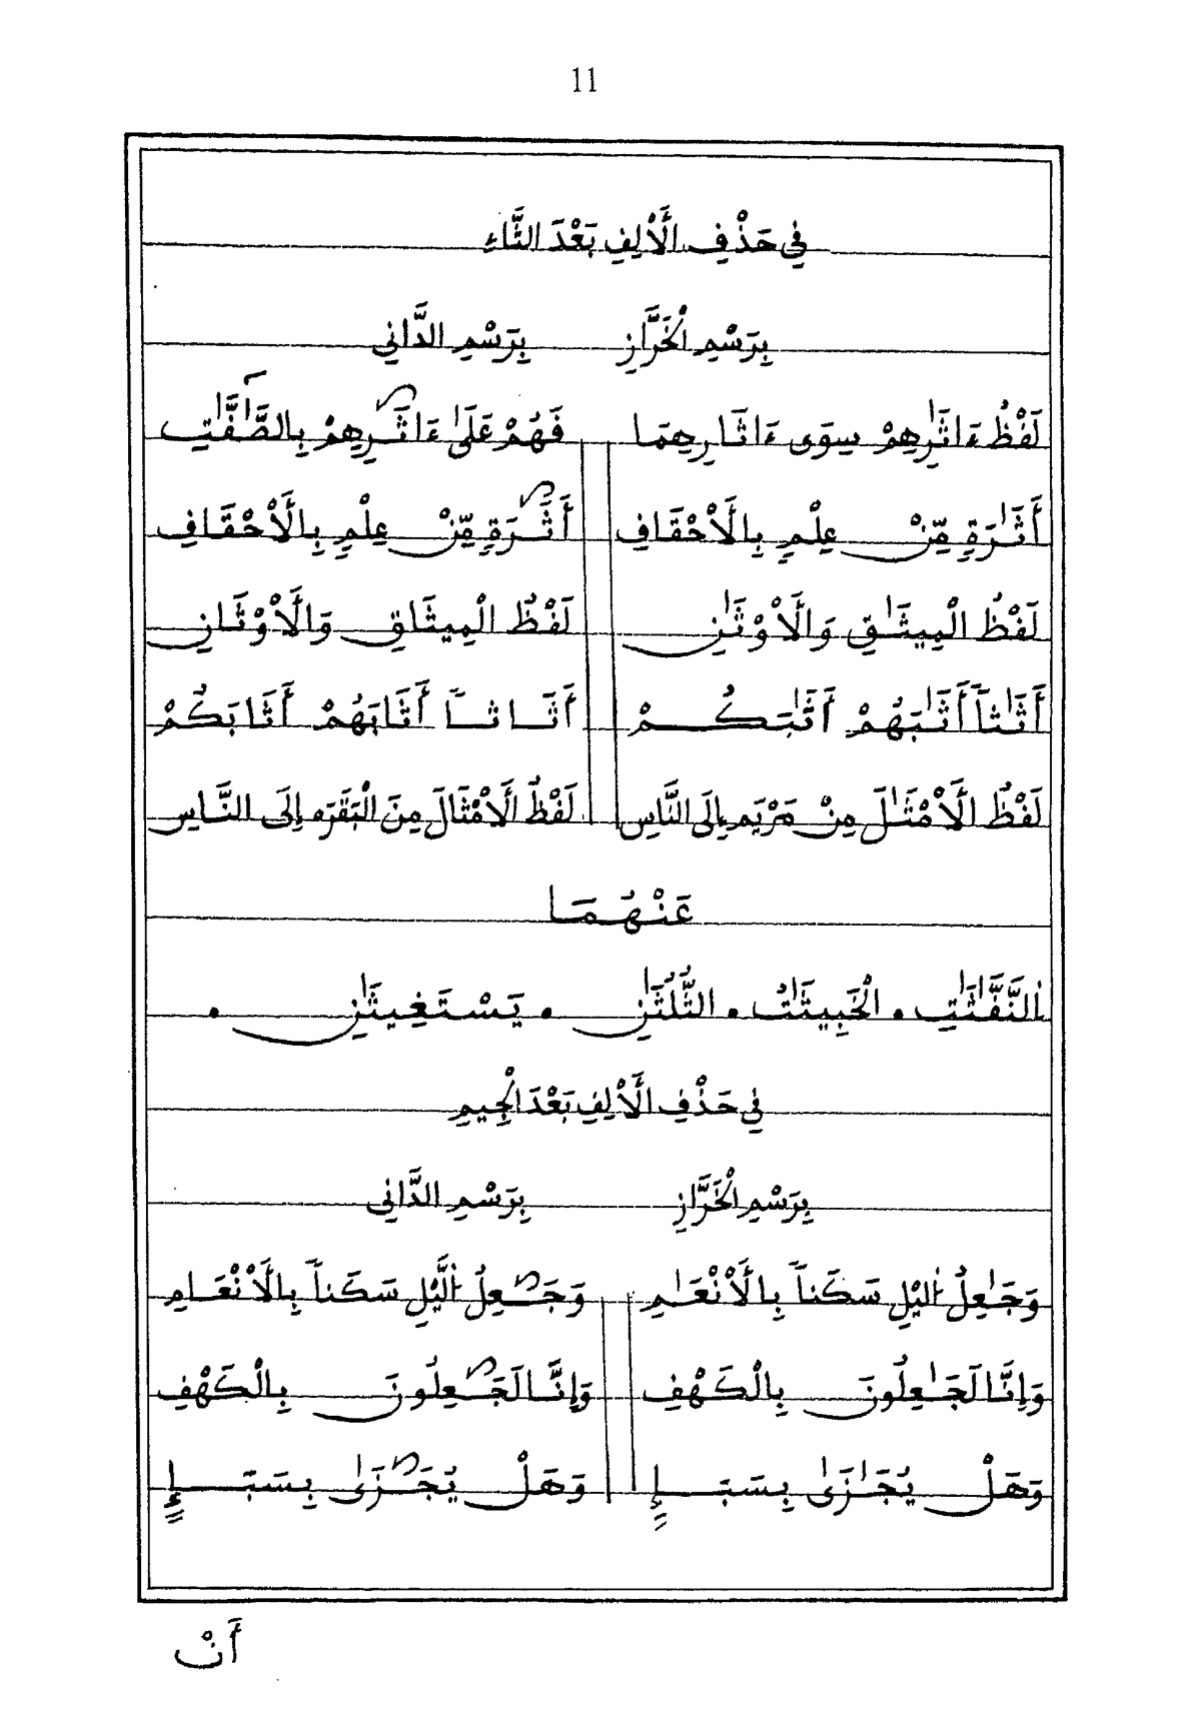 11
فِي حَذْفِ الَأْلِفِ بَعْدَ الثَّاءِ
بِرَسْمِ الْخَرَّازِ بِرَسْمِ الدَّانِي
لَفْظُ ءَاثَٰرِهِمْ سِوَى ءَاثَارِهِمَا فَهُمْ عَلَىٰ ءَاثَٰرِهِمْ بِالصَّٰٓفَّٰتِ
أَثَٰرَةٍ مِّنْ عِلْمٍ بِالَأْحْقَافِ أَثَٰرَةٍ مِّنْ عِلْمٍ بِالَأْحْقَافِ
لَفْظُ الْمِيثَٰقِ وَالَأْوْثَٰنِ لَفْظُ الْمِيثَاقِ وَالَأْوْثَانِ
أَثَٰثاً أَثَٰبَهُمْ أَثَٰبَكُمْ أَثَاثاً أَثَابَهُمْ أَثَابَكُمْ
لَفْظُ الَأْمْثَٰلَ مِنْ مَرْيَمِ إِلَى النَّاسِ لَفْظُ الَأْمْثَالَ مِنَ الْبَقَرَه إِلَى النَّاسِ
عَنْهُمَا
اُلنَّفَّٰثَٰتِ • الْخَبِيثَٰتُ • الثُّلُثَٰنِ • يَسْتَغِيثَٰنِ •
فِي حَذْفِ الَأْلِفِ بَعْدَ الْجِيمِ
بِرَسْمِ الْخَرَّازِ بِرَسْمِ الدَّانِي
وَجَٰعِلُ اُليْلِ سَكَناً بِالَأْنْعَٰمِ وَجَٰعِلُ اُلَّيْلِ سَكَناً بِالَأْنْعَامِ
وَإِنَّا لَجَٰعِلُونَ بِالْكَهْفِ وَإِنَّا لَجَٰعِلُونَ بِالْكَهْفِ
وَهَلْ يُجَٰزَىٰ بِسَبَإٍ وَهَلْ يُجَٰزَىٰ بِسَبَإٍ
أَنْ